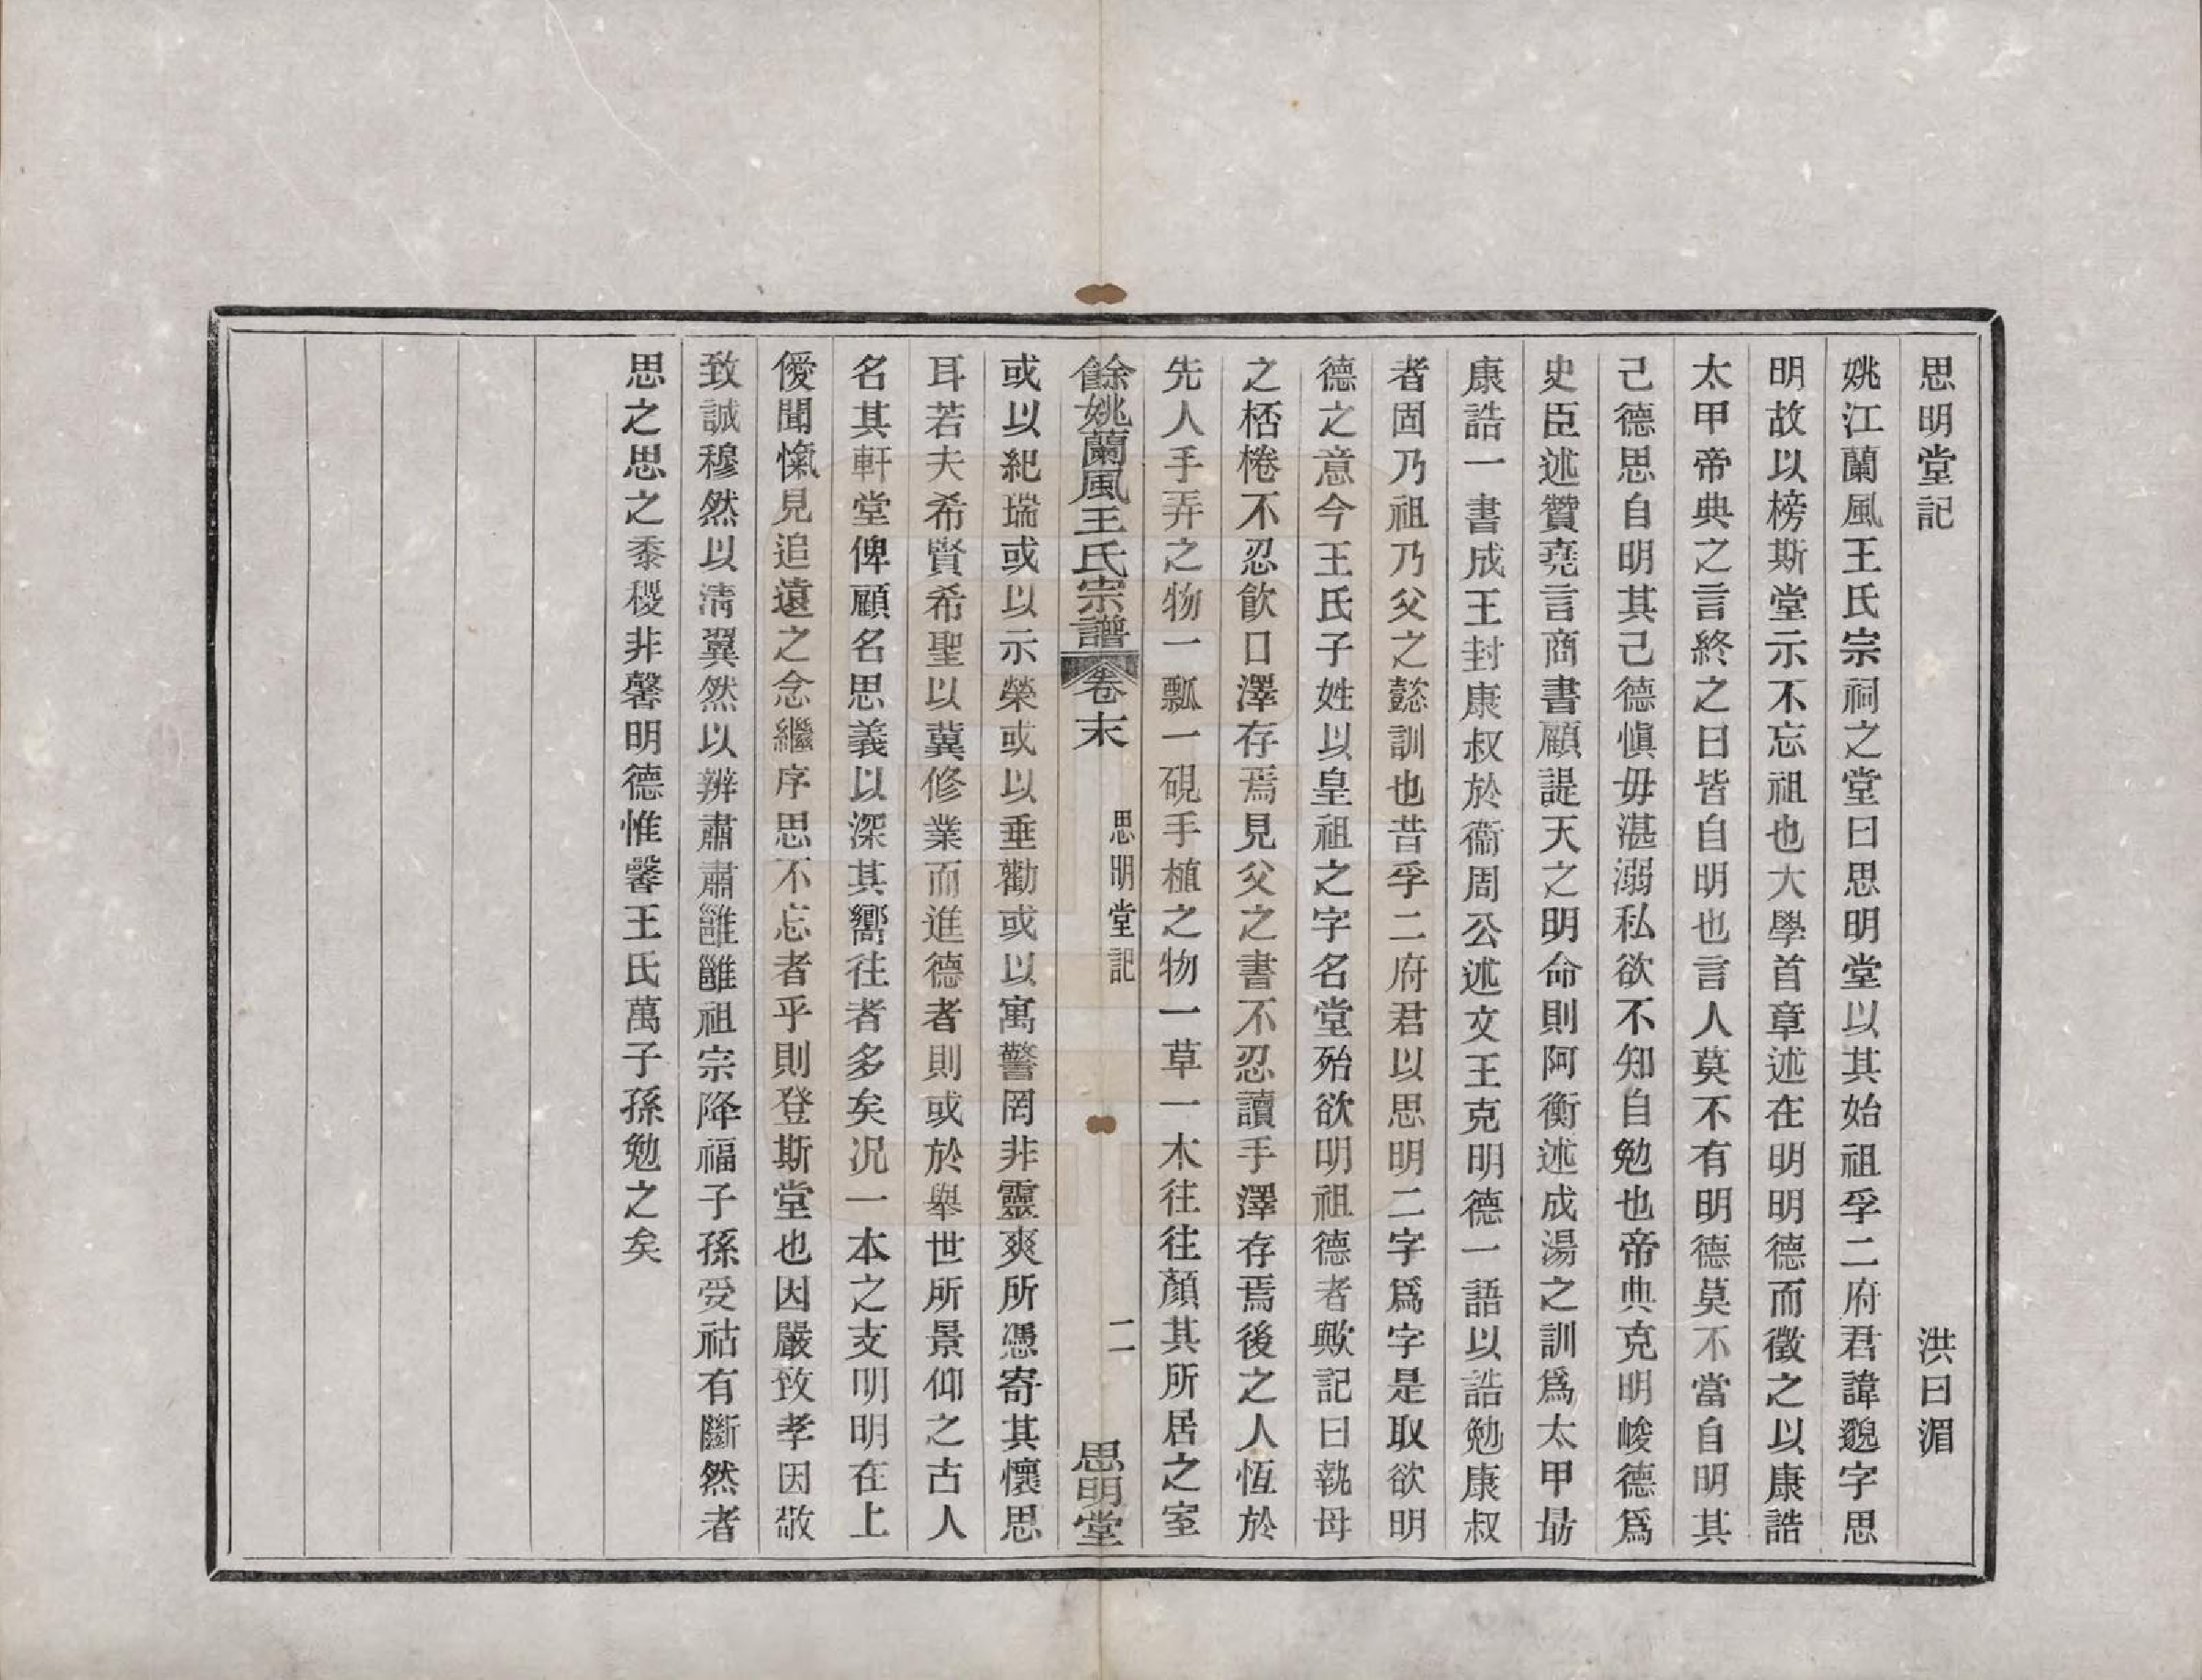 思明堂記　洪日湄
姚江蘭風王氏宗祠之堂曰思明堂以其始祖孚二府君諱邈字思
明故以榜斯堂示不忘祖也大學首章述在明明德而徵之以康誥
太甲帝典之言終之曰皆自明也言人莫不有明德莫不當自明其
己德思自明其己德愼毋湛溺私欲不知自勉也帝典克明峻德爲
史臣述贊堯言商書顧諟天之明命則阿衡述成湯之訓爲太甲勗
康誥一書成王封康叔於衞周公述文王克明德一語以誥勉康叔
者固乃祖乃父之懿訓也昔孚二府君以思明二字爲字是取欲明
德之意今王氏子姓以皇祖之字名堂殆欲明祖德者歟記曰執母
之桮棬不忍飮口澤存焉見父之書不忍讀手澤存焉後之人恆於
先人手弄之物一瓢一硯手植之物一草一木往往顏其所居之室
餘姚蘭風王氏宗譜　卷末　思明堂記　二　思明堂
或以紀瑞或以示榮或以垂勸或以寓警罔非靈爽所憑寄其懷思
耳若夫希賢希聖以冀修業而進德者則或於舉世所景仰之古人
名其軒堂俾顧名思義以深其嚮往者多矣况一本之支明明在上
僾聞愾見追遠之念繼序思不忘者乎則登斯堂也因嚴致孝因敬
致誠穆然以淸翼然以辨肅肅雝雝祖宗降福子孫受祜有斷然者
思之思之黍稷非馨明德惟馨王氏萬子孫勉之矣